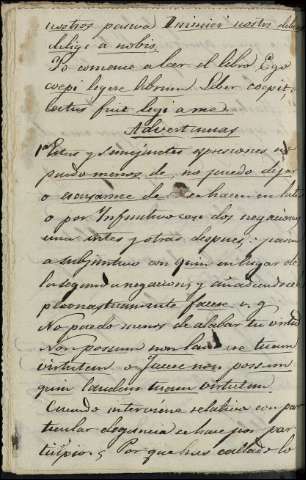 nostros paswa Inimici nostri debent
diligi a nobis.
Yo comence a leer el libro Ego
coepi legere librum. Liber coepit
lectus fuit legi a me.
Advertencias
1ª Estas y semejantes expresiones no
puedo menos de, no puedo dejar
o escusarme de se hacen en latin
o por Infinitivo con dos negaciones
una antes y otra despues, o para
a subjuntivo con quin en lugar de
la segunda negacion, y añadiendo
pleonasticamente facere v. g.
No puedo menos de alabar tu virtud
Non possum non laudare tuam
virtutem o facere non possum
quin laudem tuam virtutem.
Cuando interviene relativo con par
ticular elegancia se hace por par
ticipio, Por que has callado lo